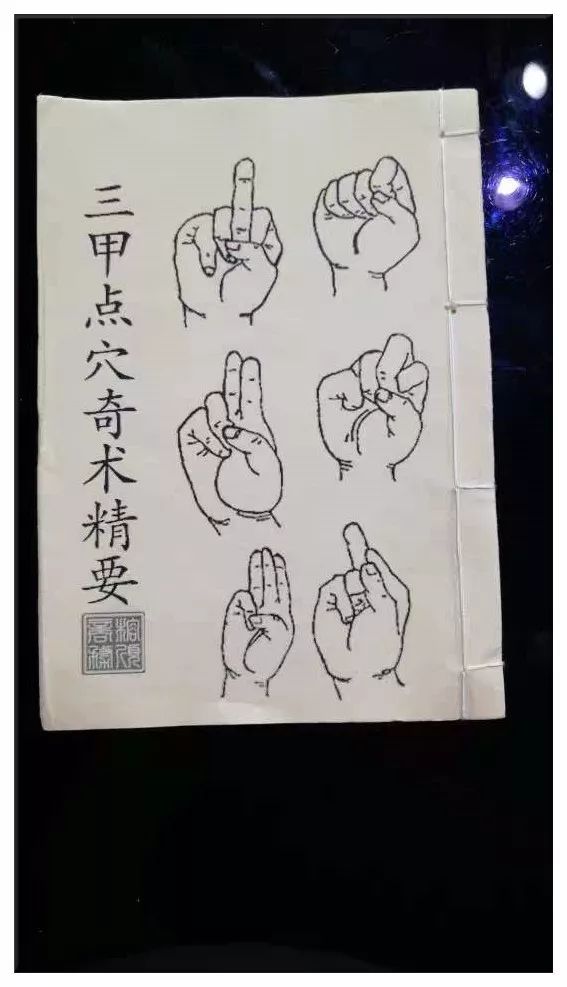 三甲点穴奇术精要